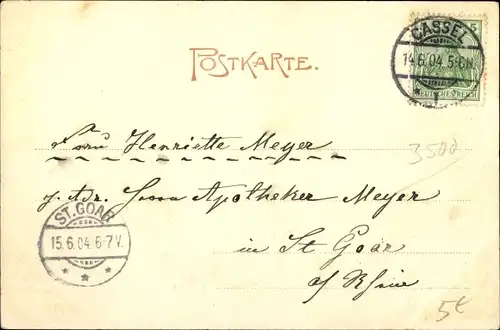 POSTKARTE.
CASSEL
14.6.04.5-6N.
5
DEUTSCHES REICH
Frau Henriette Meyer
p. Adr. Herrn Apotheker Meyer
in St Goar
a/ Rhein
ST. GOAR
15.6.04.6-7V.
* * *
3500
5€